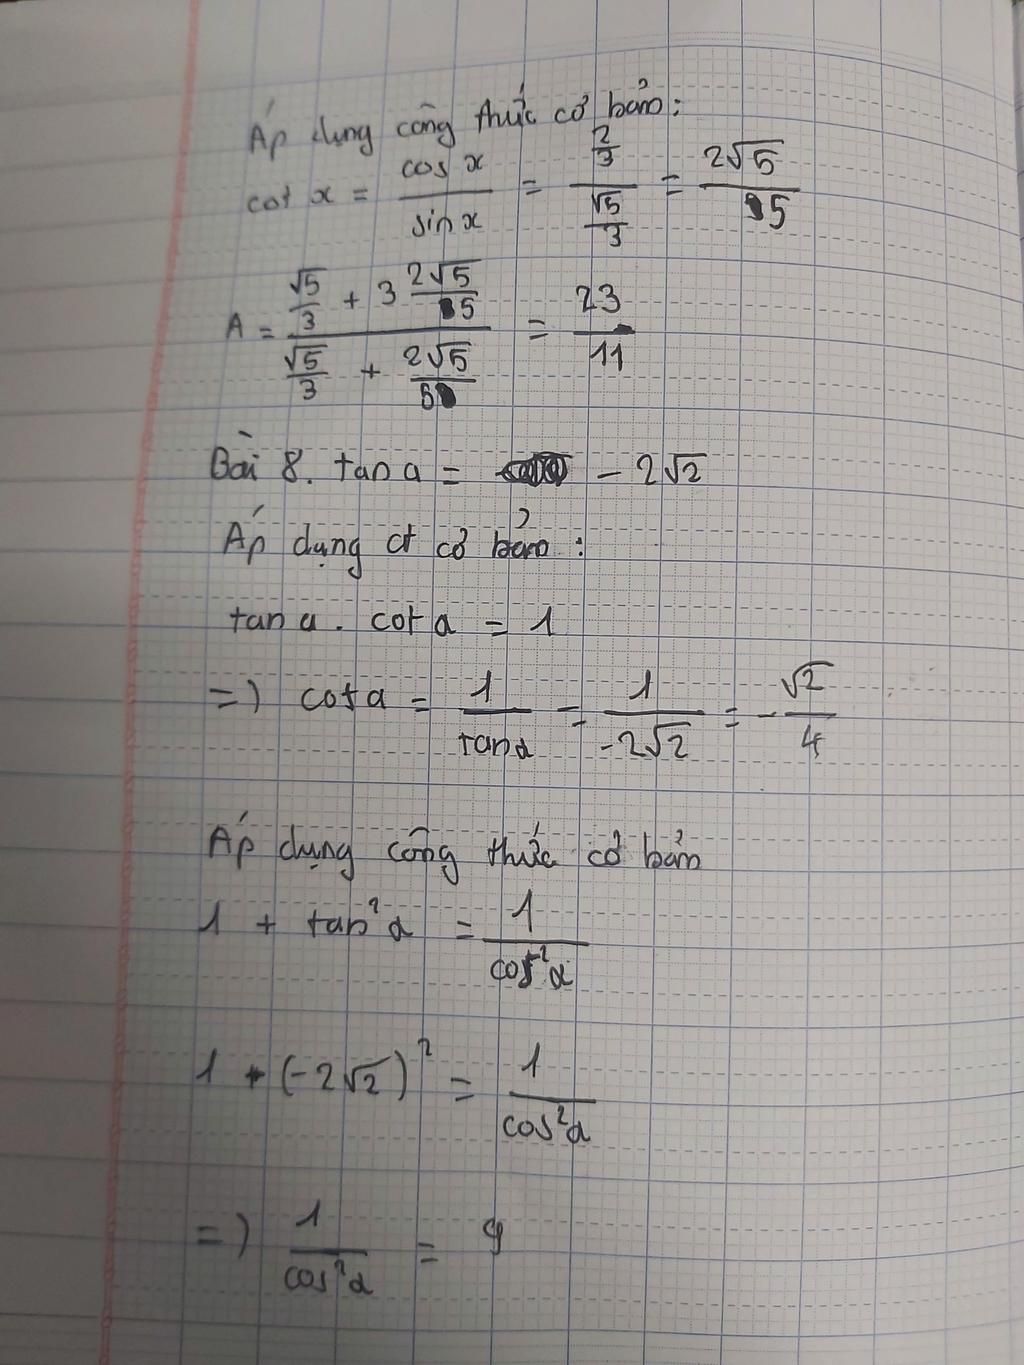 Áp dụng công thức cơ bản:
cot x = cos x / sin x = (2/3) / (√5/3) = 2√5 / 5
A = (√5/3 + 3 2√5/5) / (√5/3 + 2√5/5) = 23/11
Bài 8. tan a = - 2√2
Áp dụng ct cơ bản:
tan a . cot a = 1
=) cot a = 1 / tan α = 1 / -2√2 = - √2 / 4
Áp dụng công thức cơ bản
1 + tan²α = 1 / cos²α
1 + (-2√2)² = 1 / cos²α
=) 1 / cos²α = 9